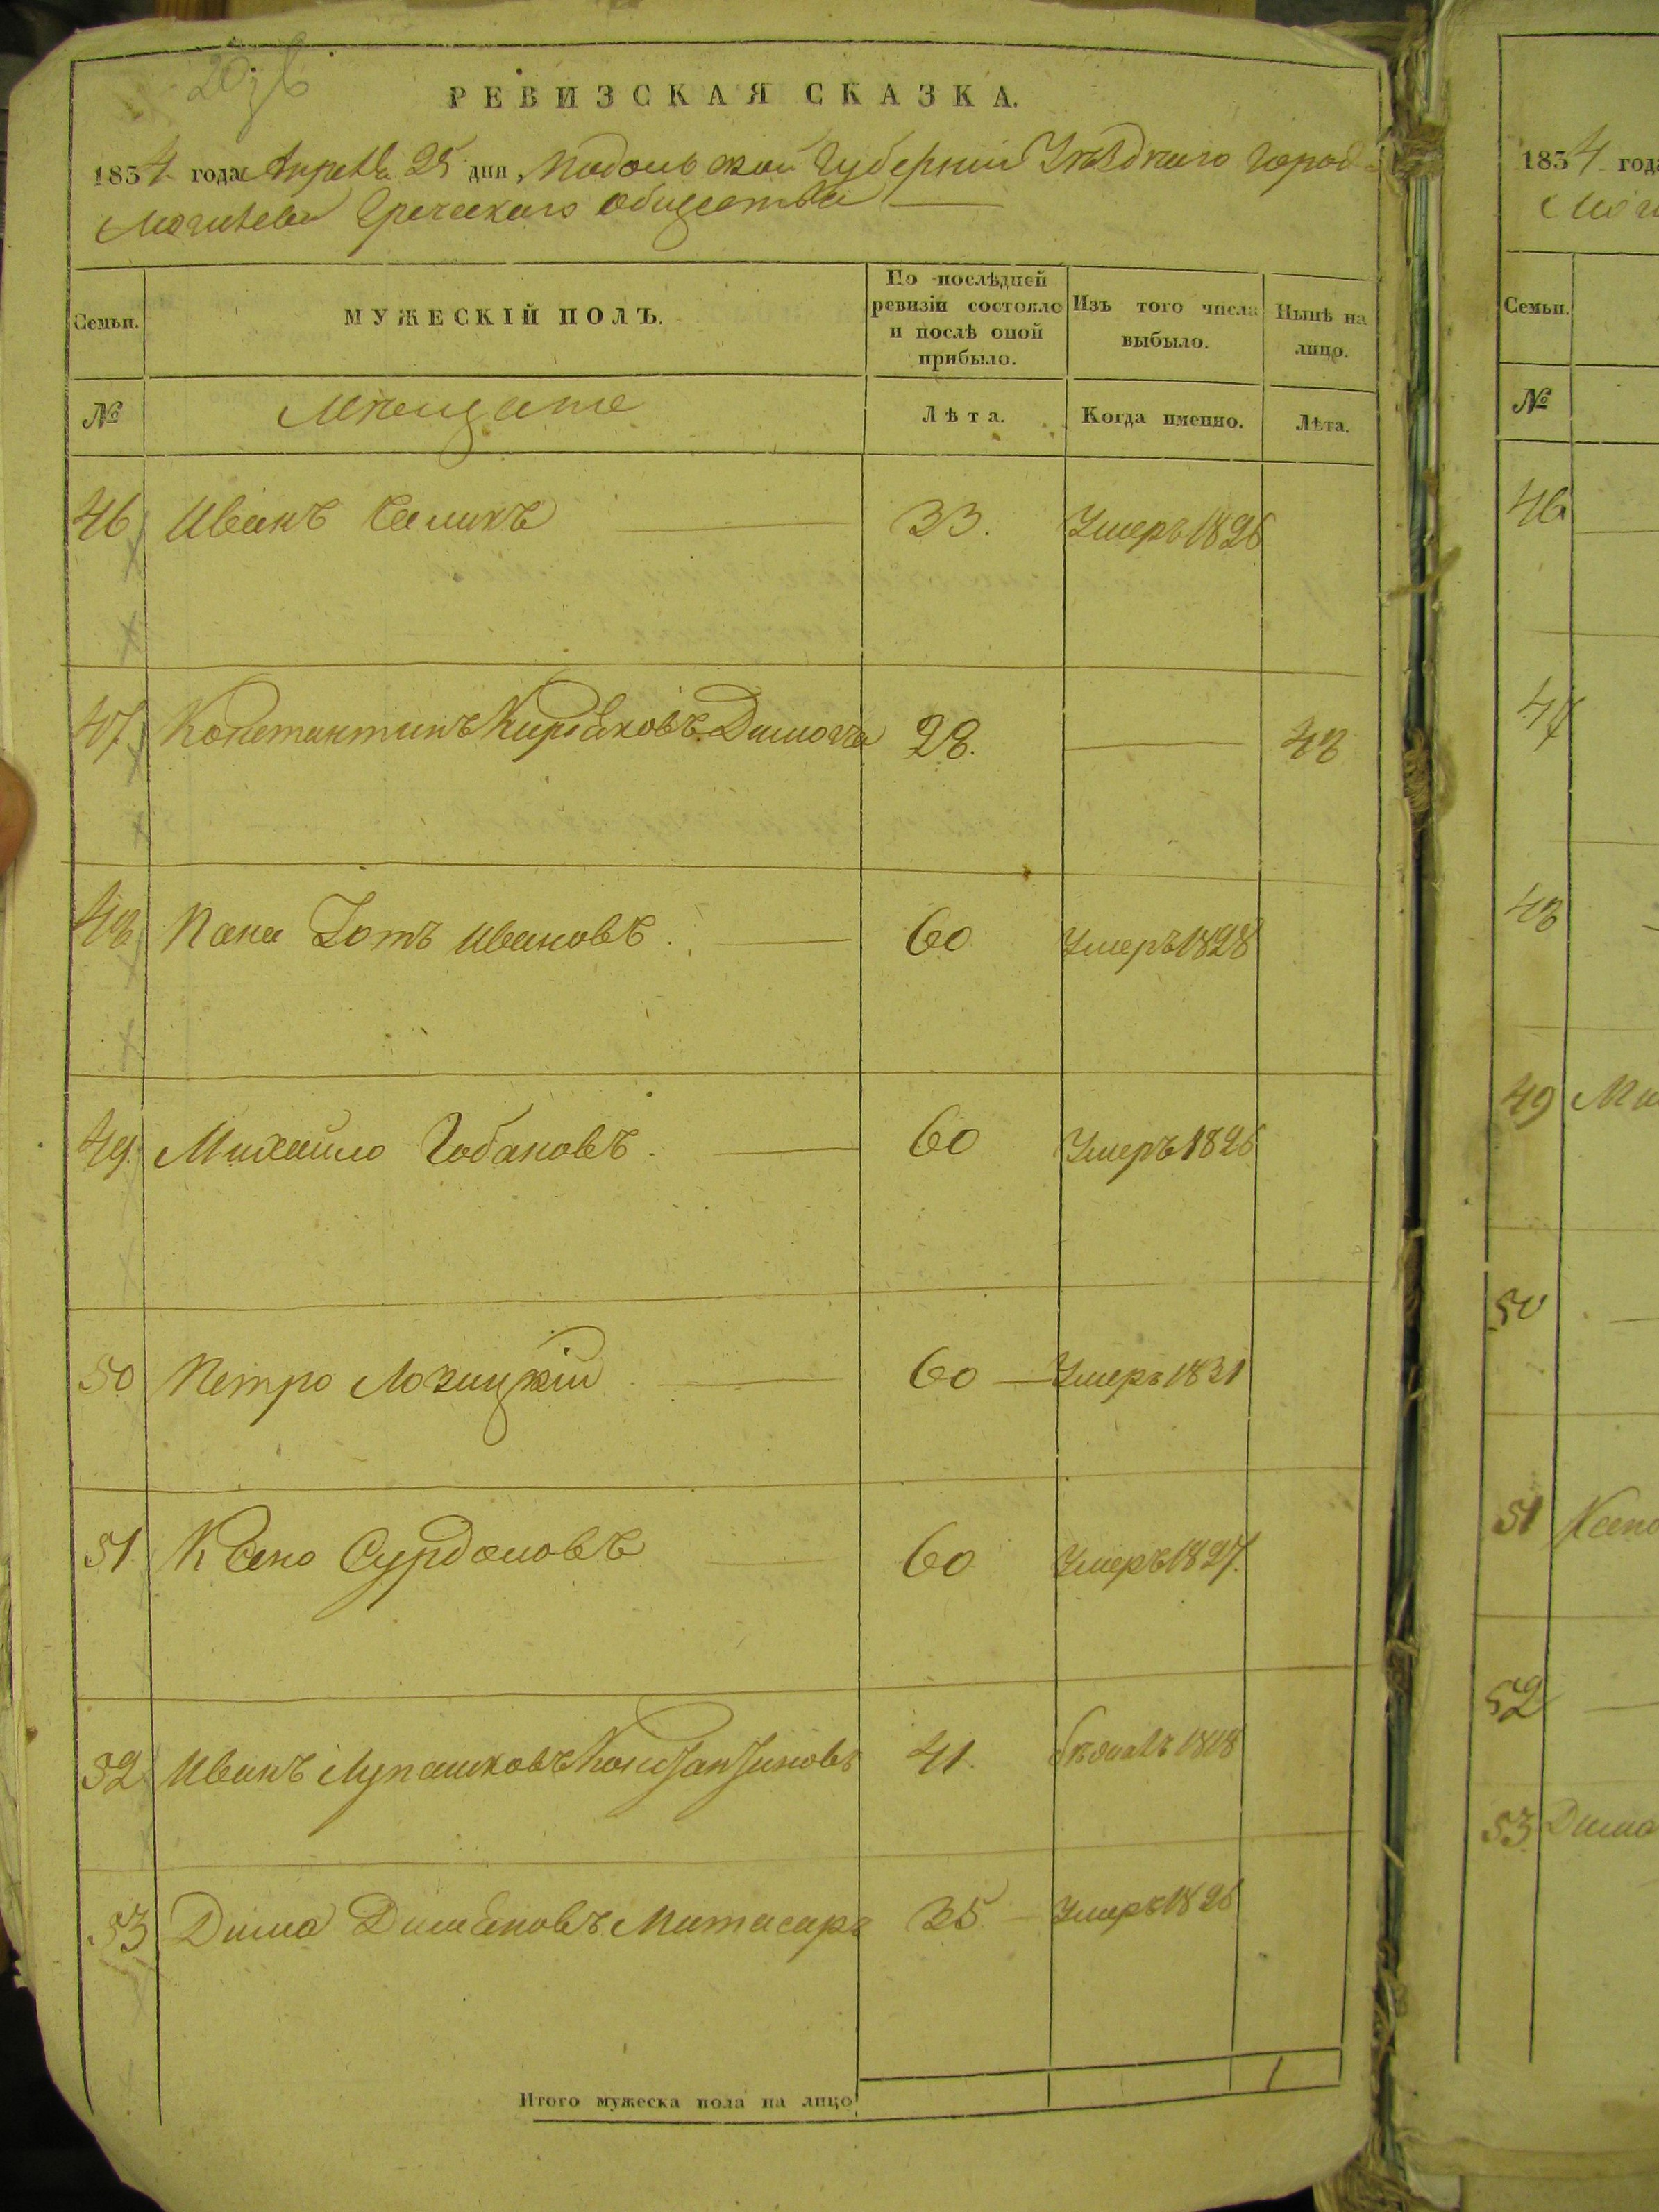 РЕВИЗСКАЯ СКАЗКА.
1834 года Апреля 25 дня, Подольской Губернии Уѣзднаго Города
Могилева Греческаго общества
Семьи. МУЖЕСКІЙ ПОЛЪ. По послѣдней ревизіи состояло и послѣ оной прибыло. Изъ того числа выбыло. Нынѣ на лицо.
№ Мѣщане Лѣта. Когда именно. Лѣта.
46 Иванъ 33. Умеръ 1826
47 Константинъ Киряковъ 28.
48 Пана Зотъ Ивановъ. 60 Умеръ 1828
49. Михайло Гобановъ. 60 Умеръ 1826
50 Петро Лозицкій 60 Умеръ 1831
51. Сурдановъ 60 Умеръ 1827.
52 Иванъ Лупашковъ Константиновъ 41.
53 Дима 35 Умеръ 1826
Итого мужеска пола на лицо 1
1834 года
Семьи.
№
46
47
48
49
50
51
52
53